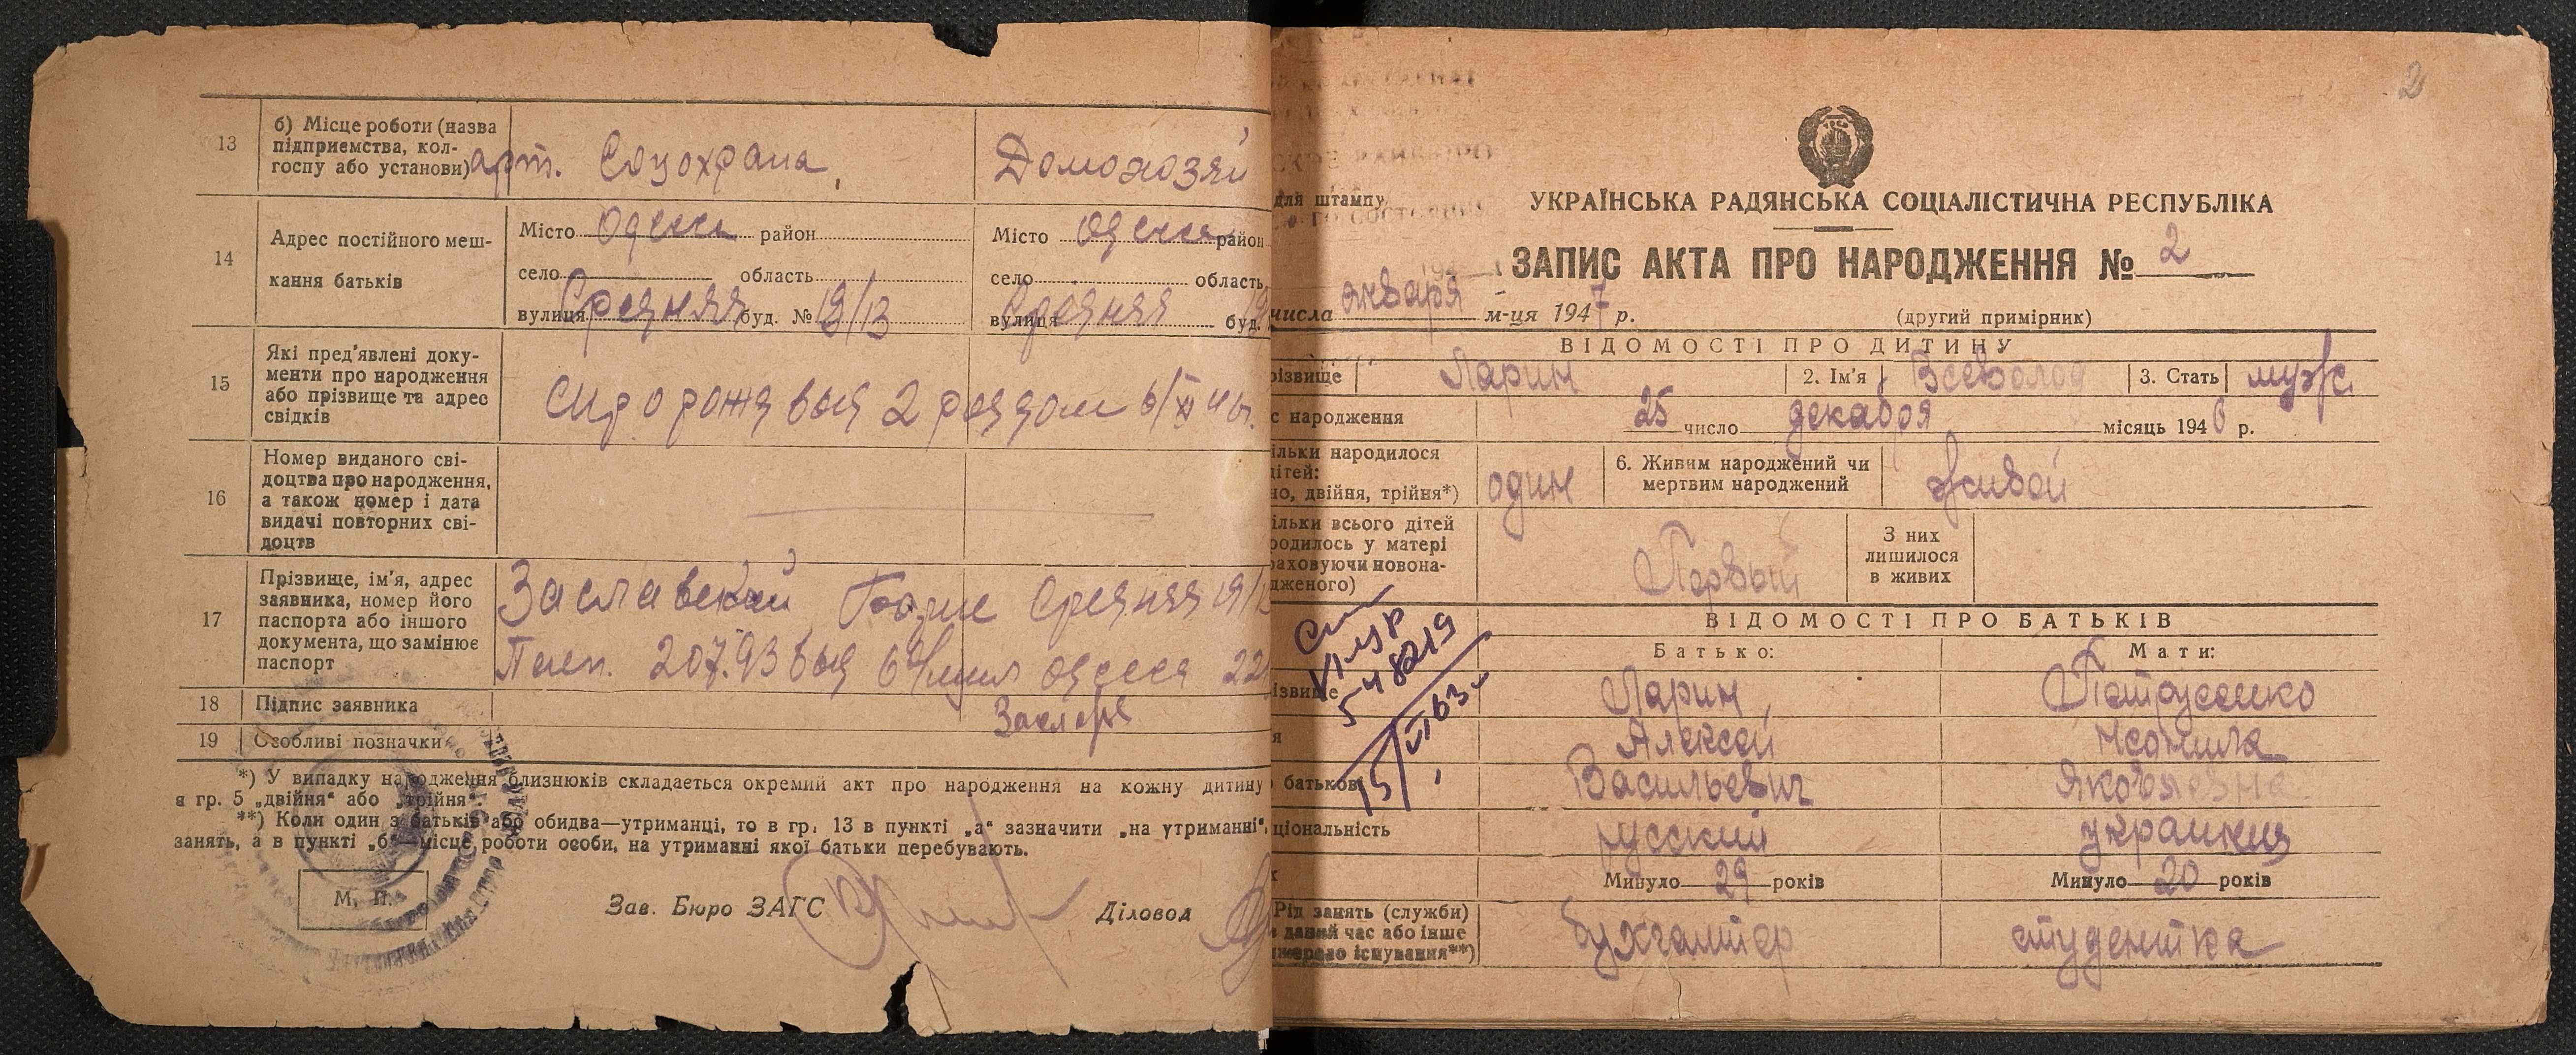 13
б) Місце роботи (назва
підприємства, кол-
госпу або установи)
арт. Соцохрана,
Домохозяй
14
Адрес постійного меш-
кання батьків
Місто Одесса район
село область
вулиця Средняя буд. № 19/13
Місто Одесса район
село область
вулиця Средняя буд. 19
15
Які пред'явлені доку-
менти про народження
або прізвище та адрес
свідків
спр о рожд выд 2 роддом 6/XI 46г.
16
Номер виданого сві-
доцтва про народження,
а також номер і дата
видачі повторних сві-
доцтв
17
Прізвище, ім'я, адрес
заявника, номер його
паспорта або іншого
документа, що замінює
паспорт
Заславский Средняя 19/1
Пасп. 20793 выд 6 Одесса 22
18
Підпис заявника
19
Особливі позначки
*) У випадку народження близнюків складається окремий акт про народження на кожну дитину
я гр. 5 „двійня“ або „трійня“.
**) Коли один з батьків або обидва—утриманці, то в гр. 13 в пункті „а“ зазначити „на утриманні“,
занять, а в пункті „б“—місце роботи особи, на утриманні якої батьки перебувають.
М. П.
Зав. Бюро ЗАГС
Діловод
2
для штампу
УКРАЇНСЬКА РАДЯНСЬКА СОЦІАЛІСТИЧНА РЕСПУБЛІКА
ЗАПИС АКТА ПРО НАРОДЖЕННЯ № 2
числа января м-ця 1947 р.
(другий примірник)
ВІДОМОСТІ ПРО ДИТИНУ
різвище Ларин 2. Ім'я Всеволод 3. Стать муж.
с народження 25 число декабря місяць 1946 р.
ільки народилося
ітей:
но, двійня, трійня*)
один
6. Живим народжений чи
мертвим народжений
живой
ільки всього дітей
родилось у матері
раховуючи новона-
дженого)
Первый
З них
лишилося
в живих
VI МУР
548219
15/VII 63 г
ВІДОМОСТІ ПРО БАТЬКІВ
Батько: Мати:
ізвище Ларин Петрусенко
я Алексей Неонила
батькові Васильевич Яковлевна
ціональність русский украинка
Минуло 29 років Минуло 20 років
Рід занять (служби)
в даний час або інше
джерело існування**)
бухгалтер студентка